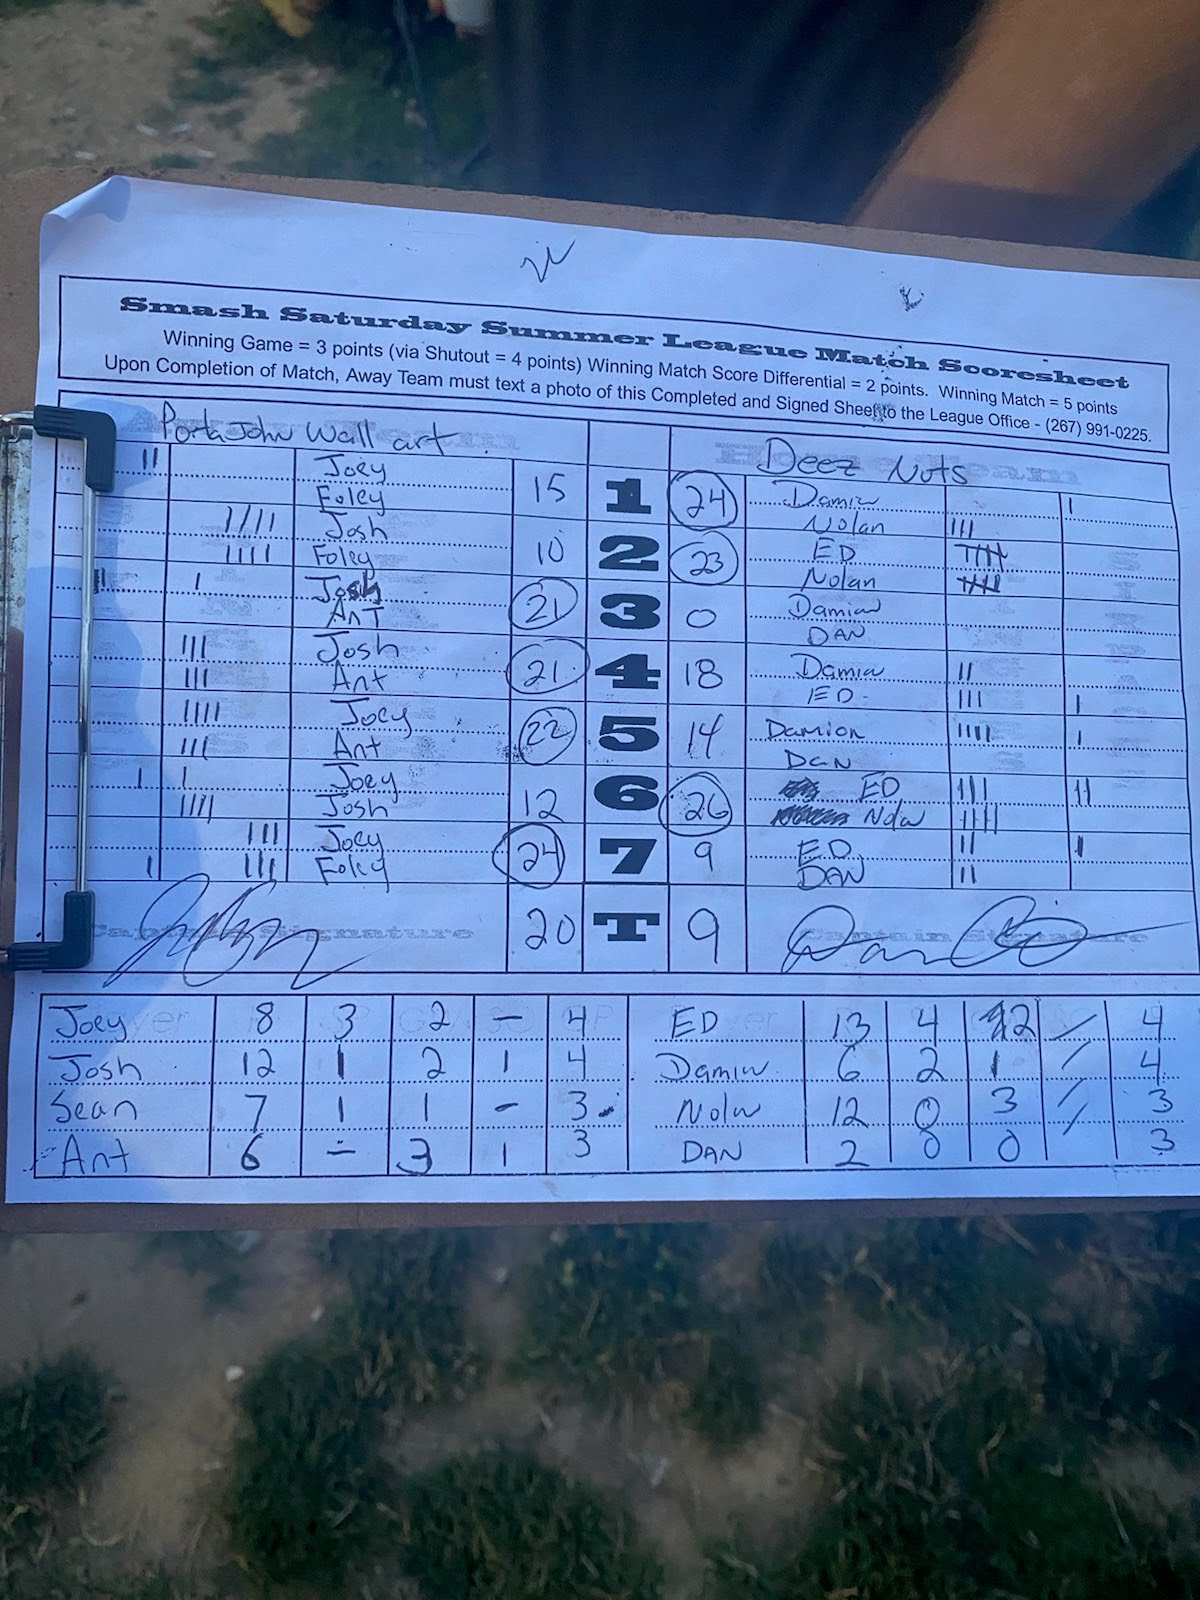 Smash Saturday Summer League Match Scoresheet
Winning Game = 3 points (via Shutout = 4 points) Winning Match Score Differential = 2 points. Winning Match = 5 points
Upon Completion of Match, Away Team must text a photo of this Completed and Signed Sheet to the League Office - (267) 991-0225.
PortaJohn Wall art Deez Nuts
Joey 15 1 24 Damiw
Foley Nolan
Josh 10 2 23 ED
Foley Nolan
Josh 21 3 0 Damian
Ant DAN
Josh 21 4 18 Damiw
Ant ED
Joey 22 5 14 Damion
Ant Dan
Joey 12 6 26 ED
Josh Nolw
Joey 24 7 9 ED
Foley DAN
Captain Signature 20 T 9 Captain Signature
Joey 8 3 2 - 4 ED 13 4 2 / 4
Josh 12 1 2 1 4 Damiw 6 2 1 / 4
Sean 7 1 1 - 3 Nolw 12 0 3 / 3
Ant 6 - 3 1 3 DAN 2 0 0 3